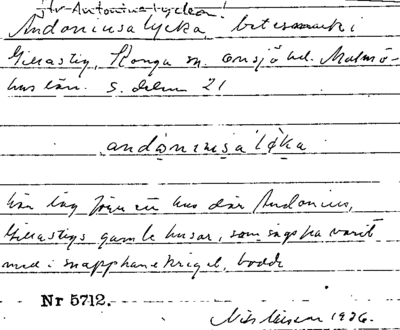 jfr Antonius lyckan!
Andoniusa lycka, betesmark i
Gillastig, Konga sn. Onsjö hd. Malmö-
hus län. S. delen 21
andoniusa
här låg förr ett hus där Andonius,
Gillastigs gamle husar, som sägs ha varit
med i snapphanekriget, bodde
Nr 5712.
Nils 1926.